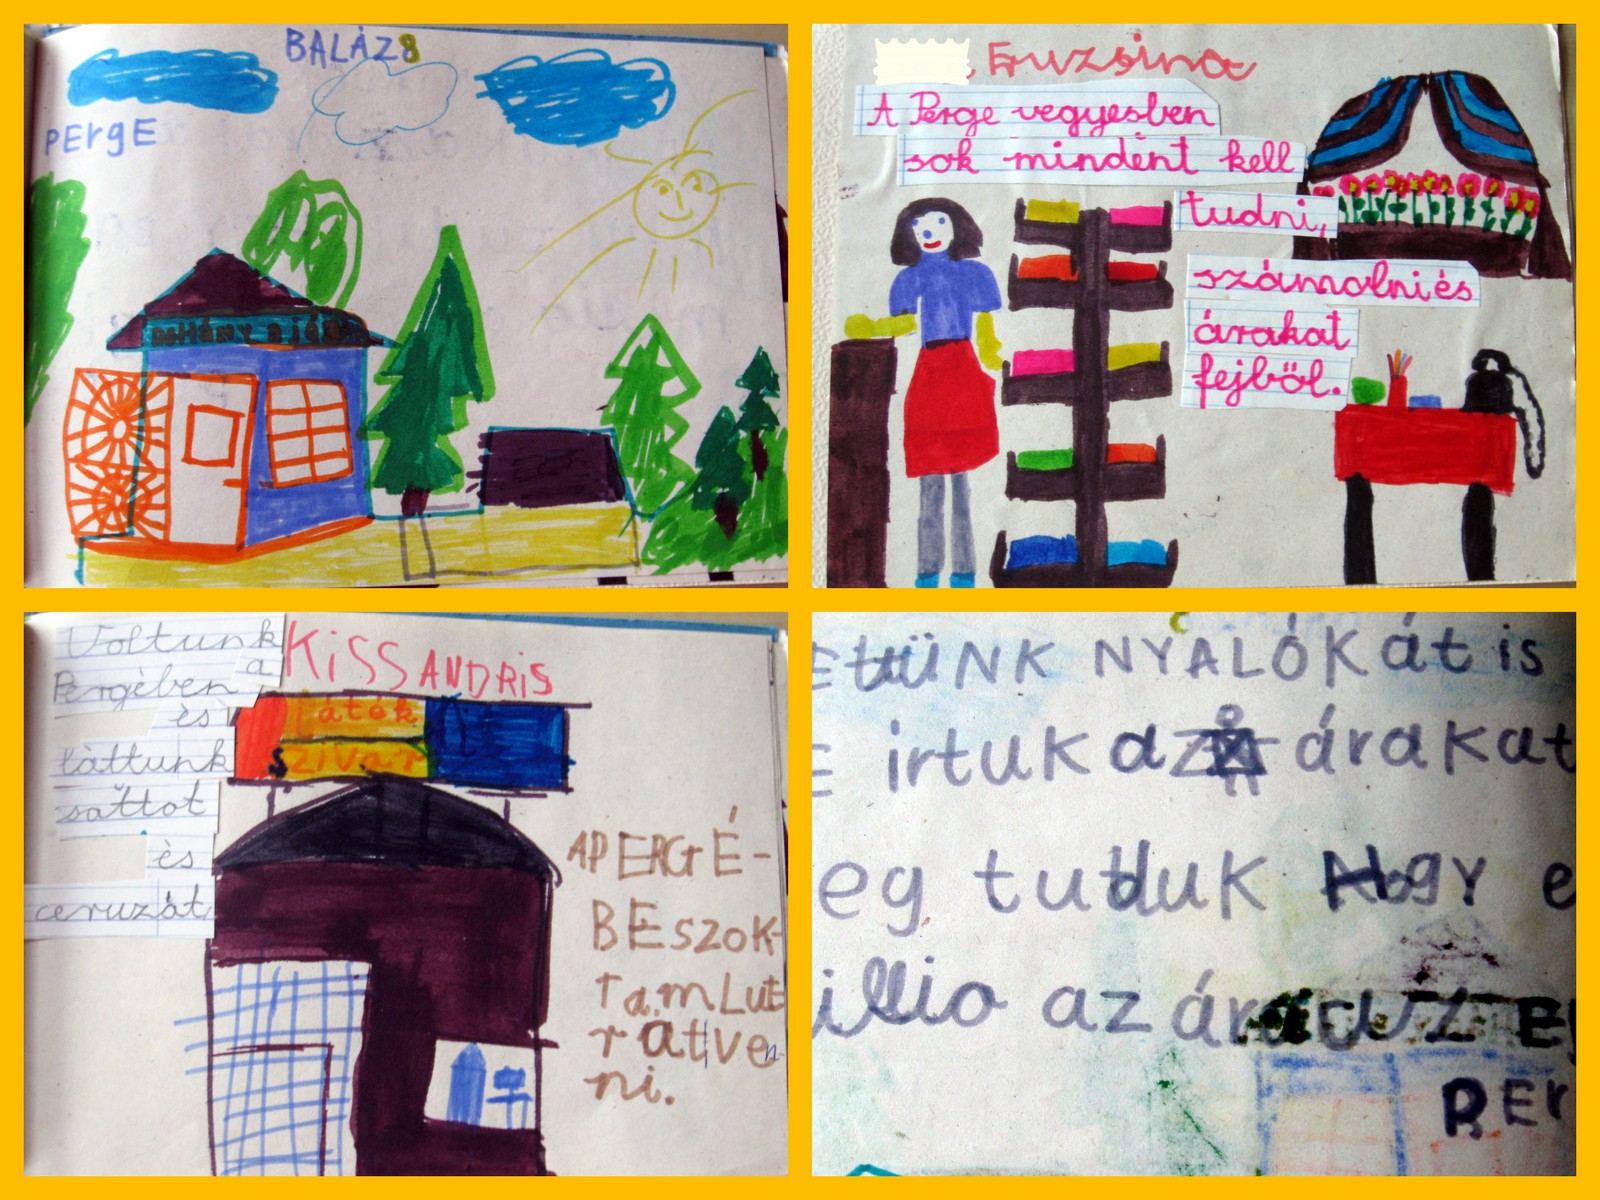 BALÁZS
PErgE
Fruzsina
A Perge vegyesben
sok mindent kell
tudni,
számolni és
árakat
fejből.
Voltunk
a
Pergében
és
láttunk
sajtot
és
ceruzát
KiSS ANDRIS
játék
szivar
A PERGÉ-
BE szok-
tam Lut
rát ven-
ni.
EttüNK NYALÓKát is
E irtuk az árakat
eg tudtuk Hogy e
illio az
PEr